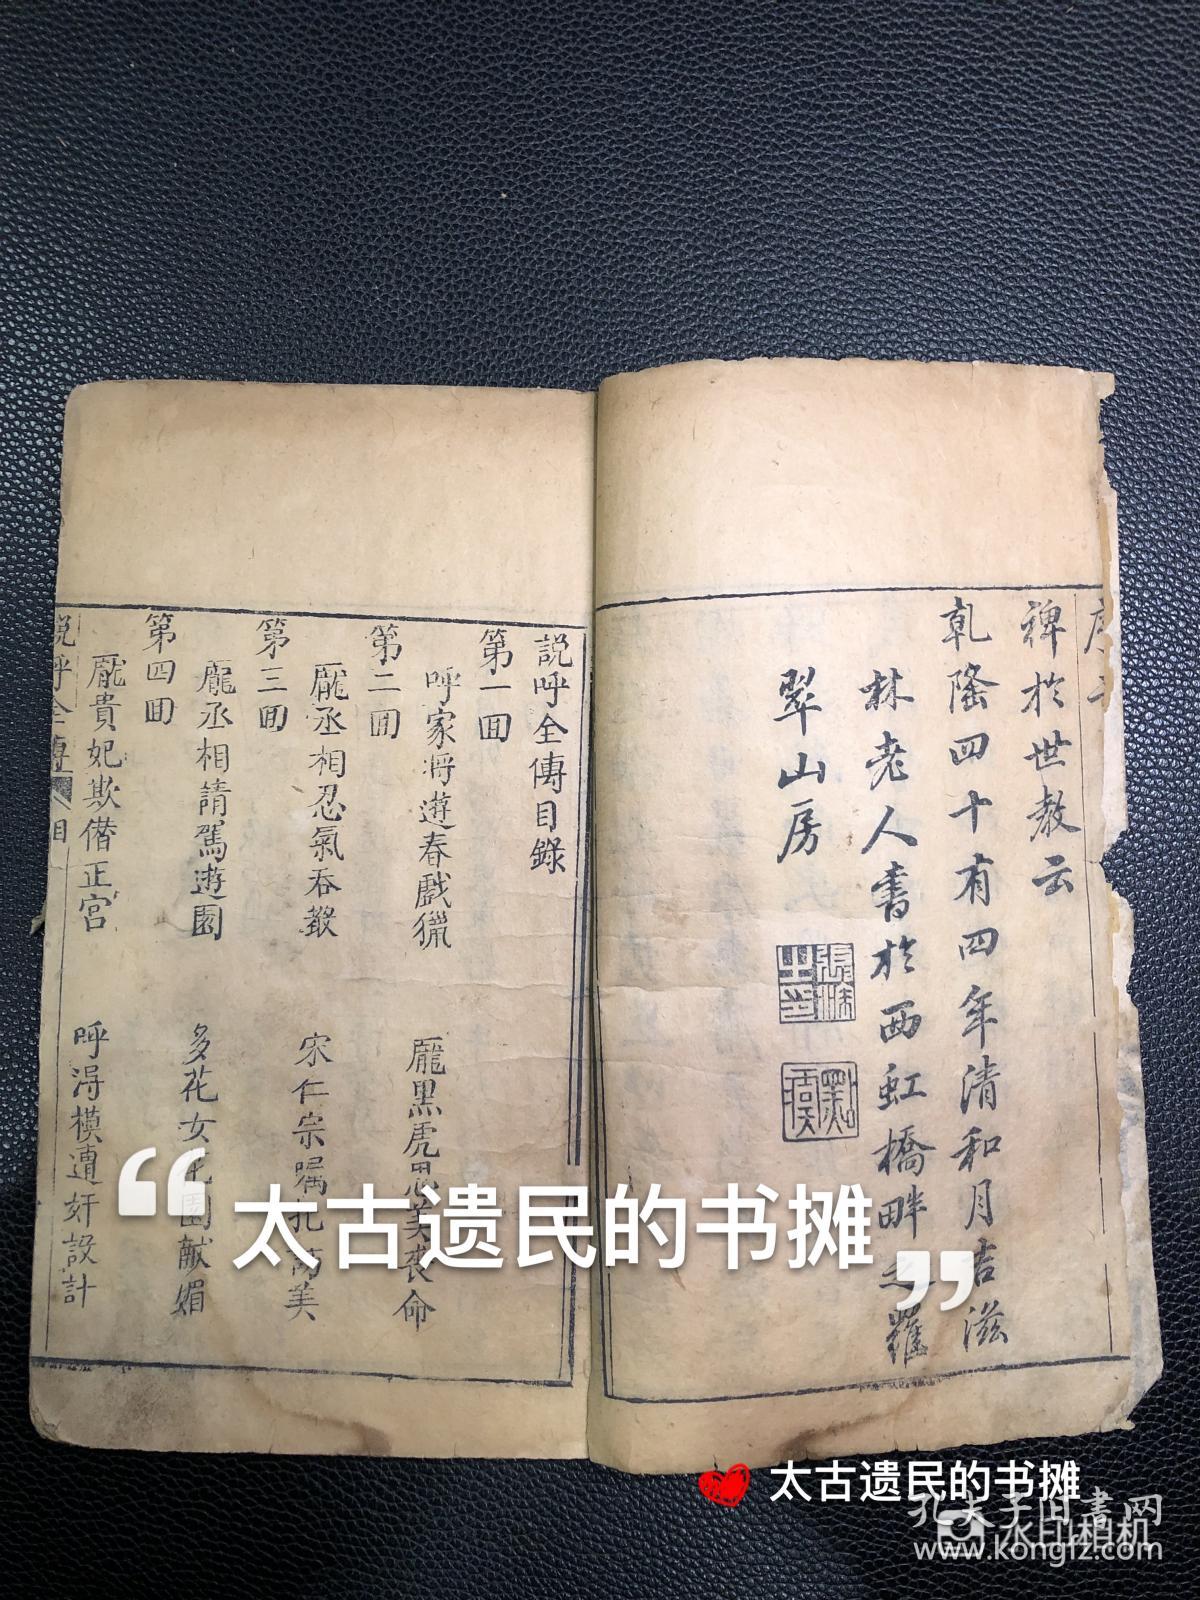 序
裨於世教云
乾隆四十有四年清和月吉滋
林老人書於西虹橋畔之羅
翠山房
說呼全傳目錄
第一囬
呼家將遊春戲獵 龎黑虎思美喪命
第二囬
龎丞相忍氣吞聲 宋仁宗
美
第三囬
龎丞相請駕遊園 多花女花園献媚
第四囬
龎貴妃欺僭正宮 呼淂模遭奸設計
說呼全傳 目
“太古遗民的书摊”
太古遗民的书摊
孔夫子旧书网
水印相机
www.kongfz.com